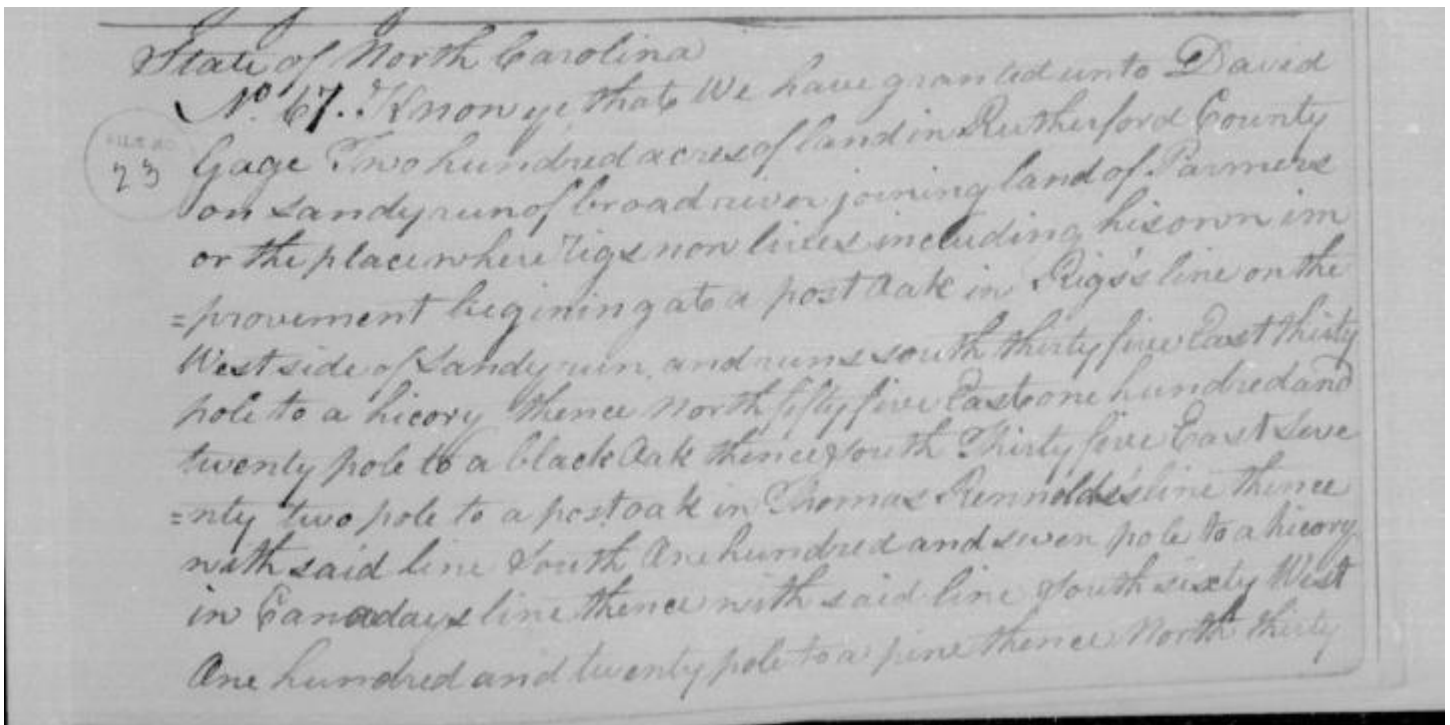 State of North Carolina
No. 67. Know ye that We have granted unto David
FILE NO.
23
Gage Two hundred acres of land in Rutherford County
on Sandy run of broad river joining land of Parmers
or the place where Rigs now lives including his own im
=provement begining at a post Oak in Rigs's line on the
West side of Sandy run, and runs south thirty five East thirty
pole to a hicory thence North fifty five East one hundred and
twenty pole to a black Oak thence South Thirty five East Seve
=nty two pole to a post oak in Thomas Rennolds's line thence
with said line South One hundred and seven pole to a hicory
in Canadays line thence with said line South sixty West
One hundred and twenty pole to a pine thence North thirty